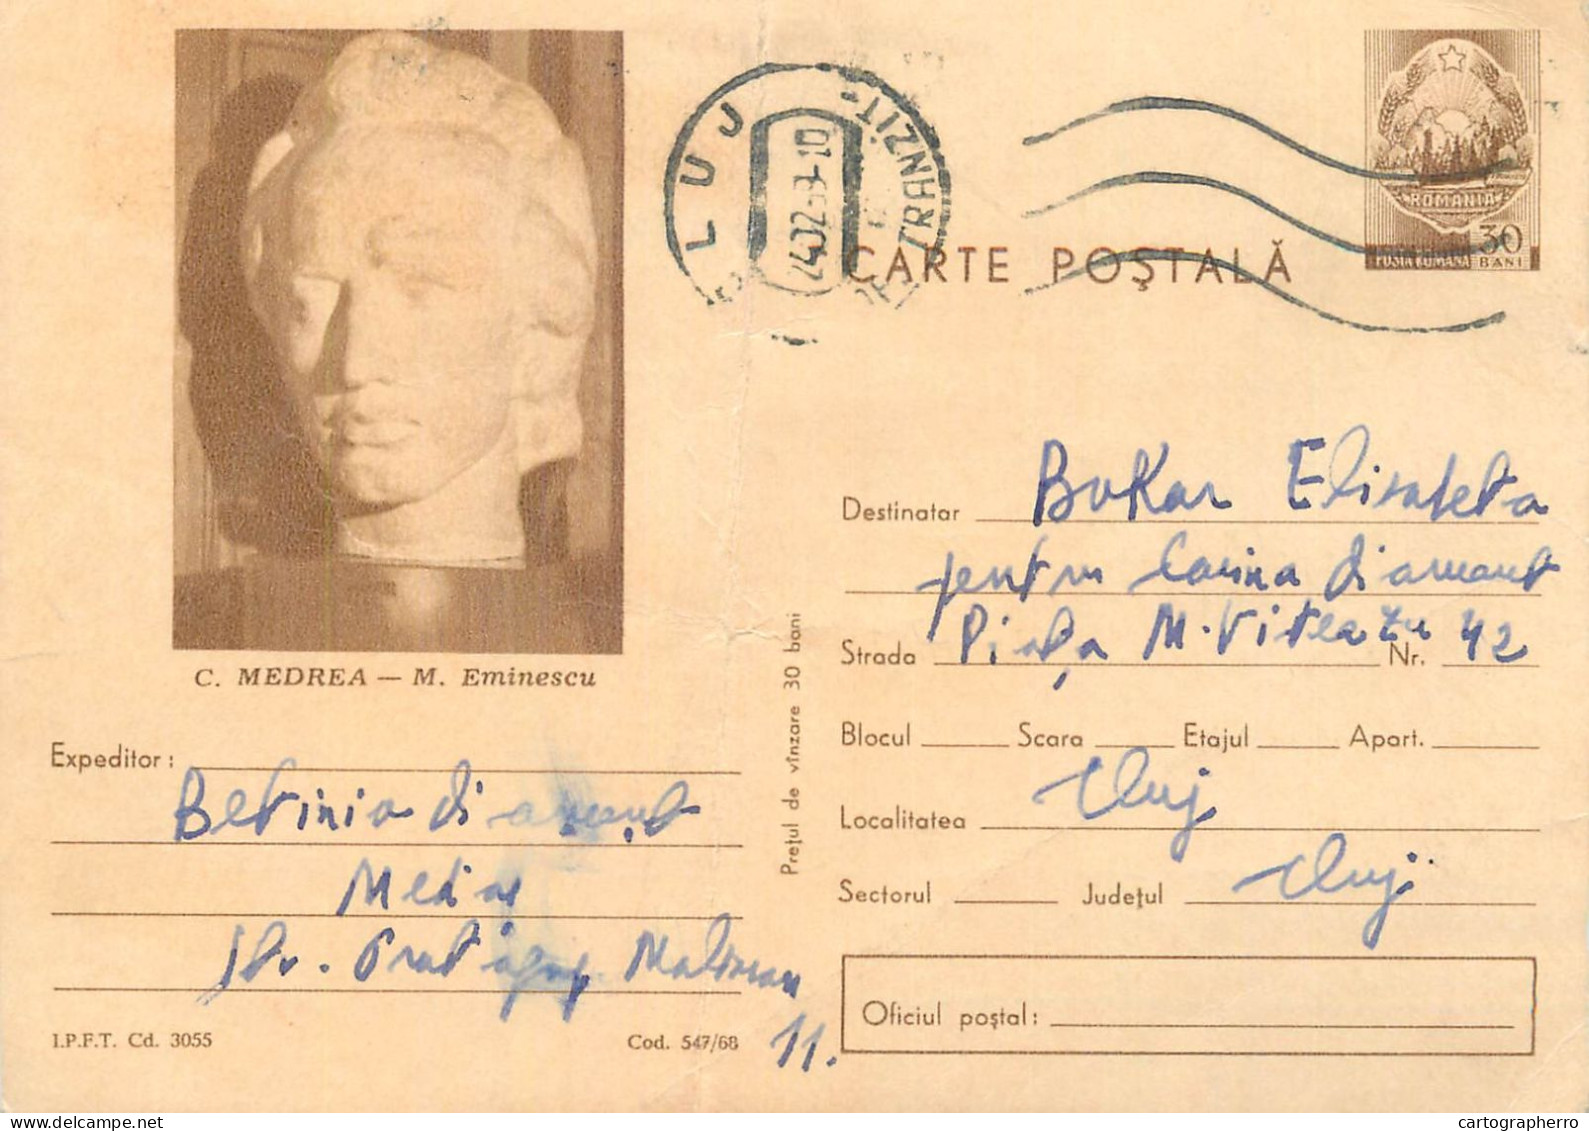 CLUJ
TRANZIT
2402-69-10
ROMANIA
POSTA ROMANA
30
BANI
CARTE POȘTALĂ
C. MEDREA — M. Eminescu
Destinatar Bokar Elisabeta
pentru Carina Diamant
Strada Piața M. Viteazu Nr. 42
Blocul Scara Etajul Apart.
Localitatea Cluj
Sectorul Județul Cluj
Oficiul poștal:
Prețul de vînzare 30 bani
Expeditor:
Betinia Diamant
Mediaș
Str. Malinau
11.
I.P.F.T. Cd. 3055
Cod. 547/68
www.delcampe.net
cartographerro